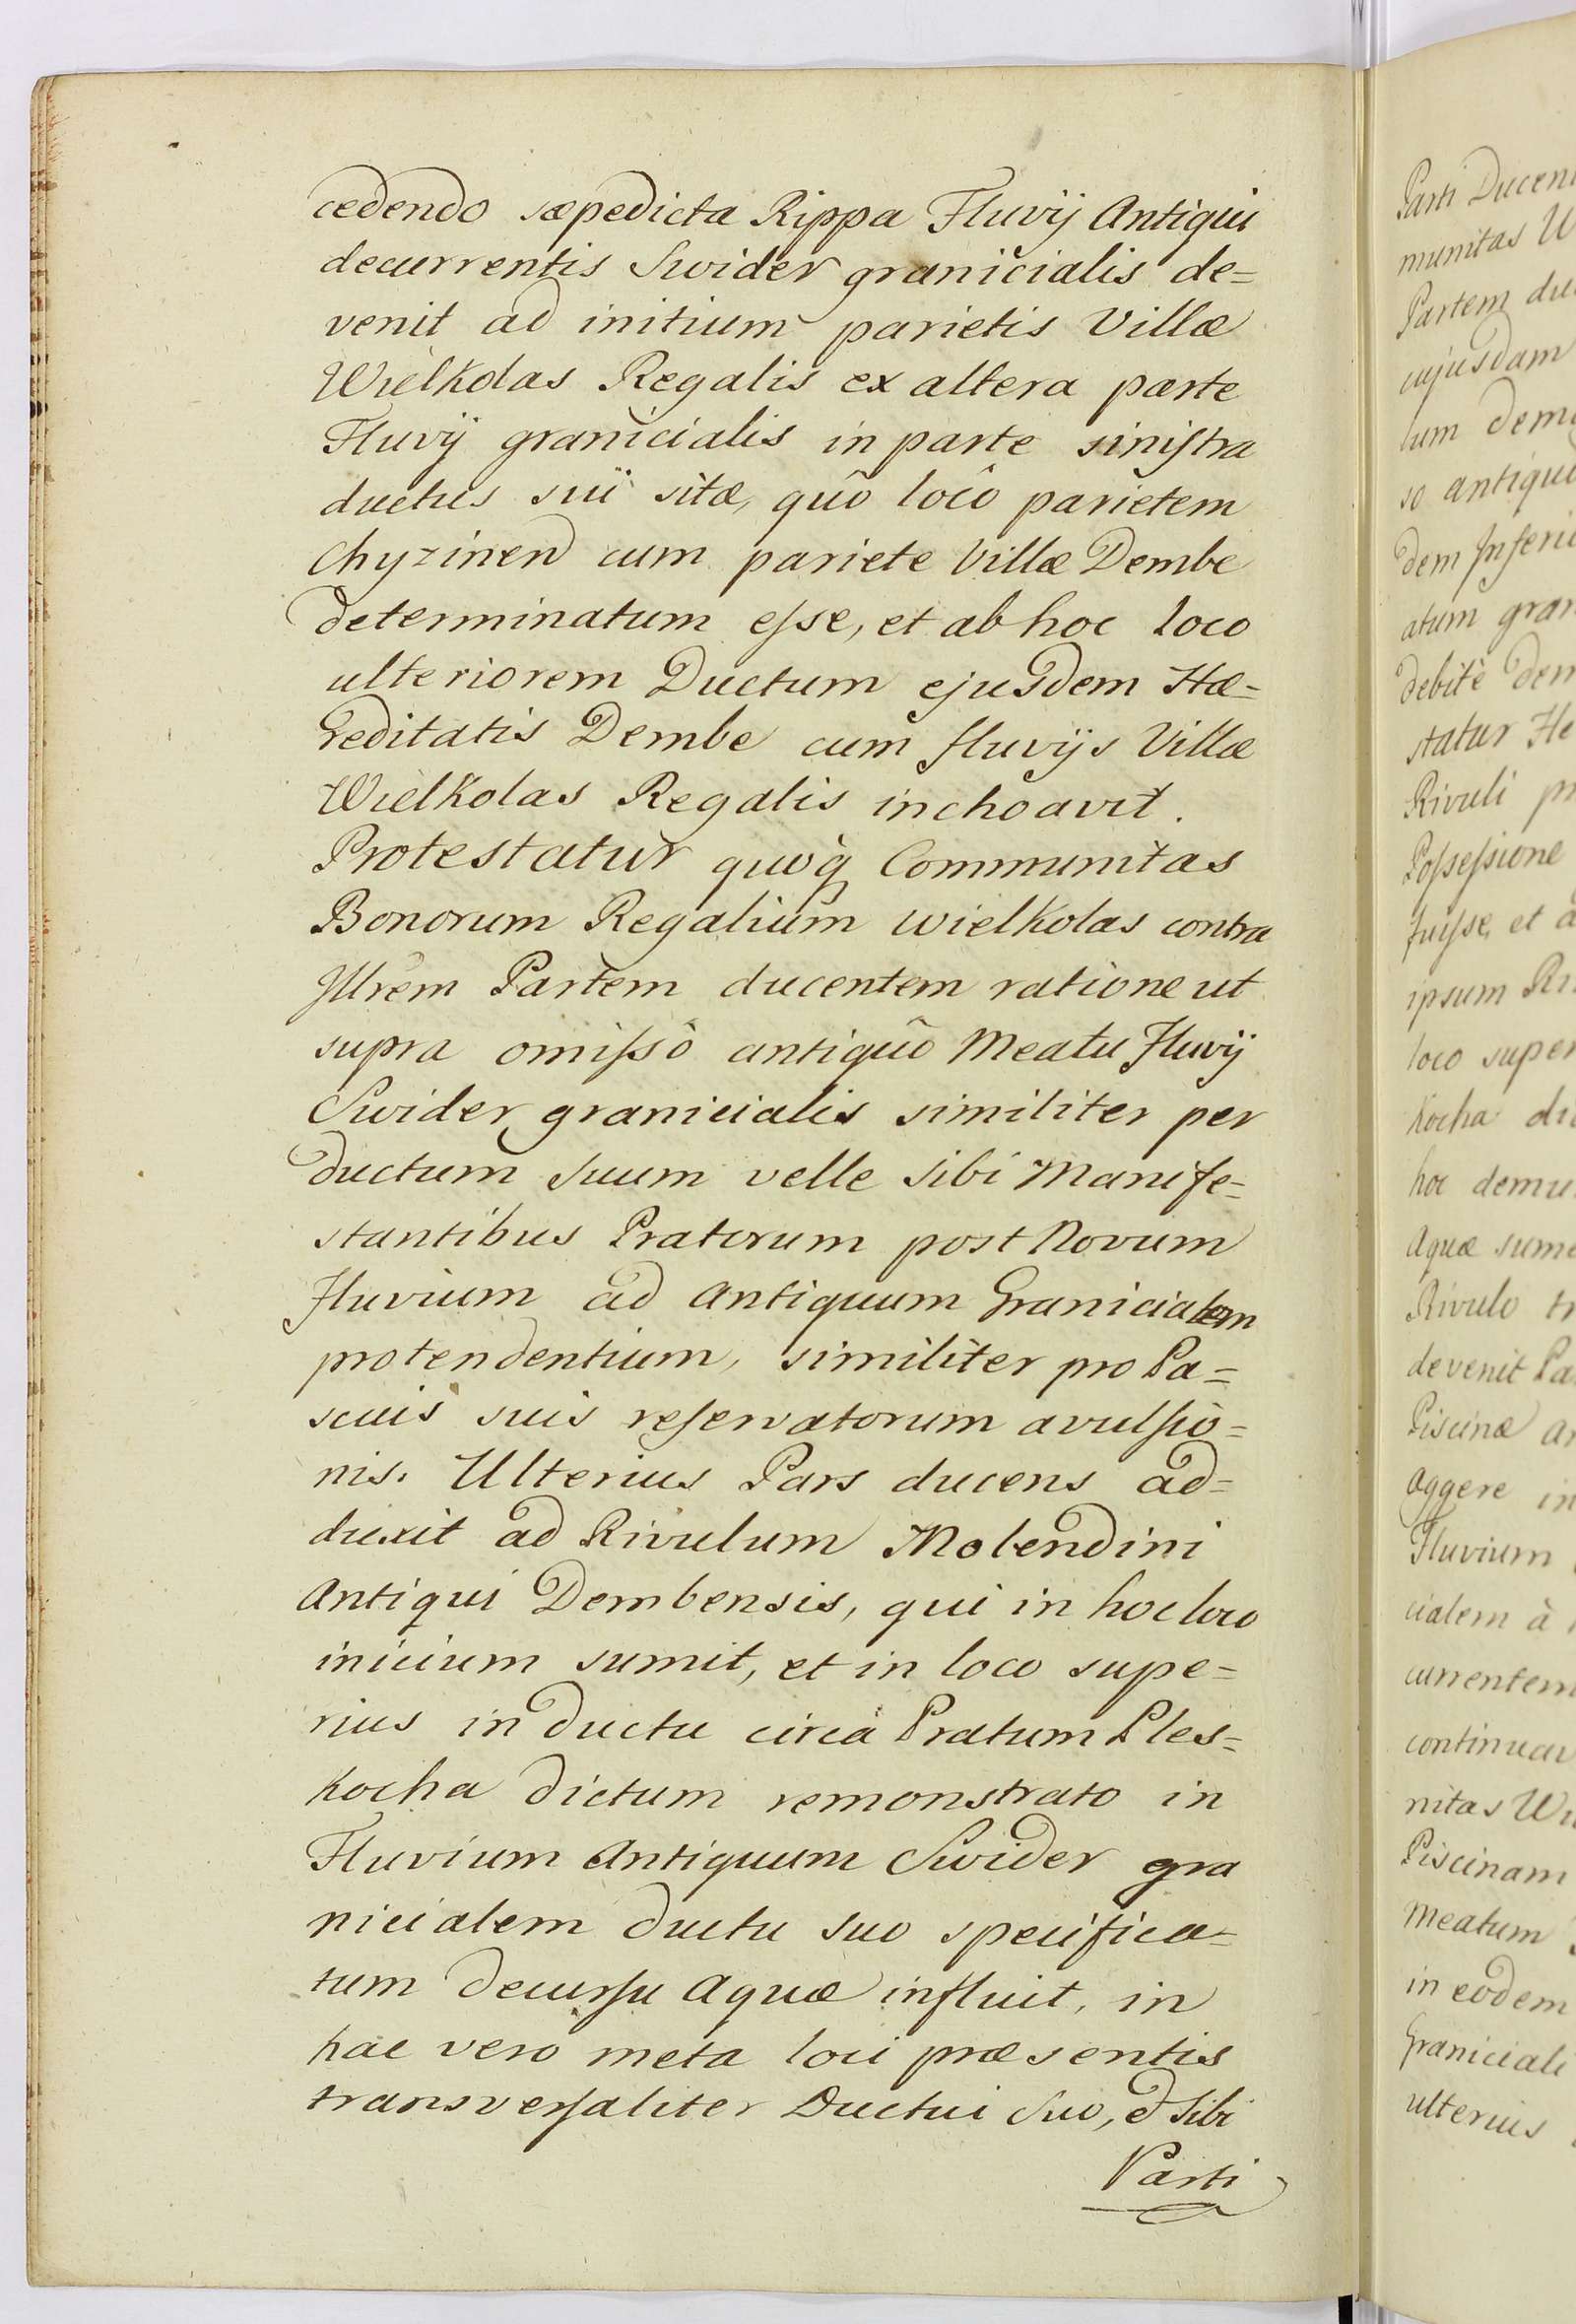 cedendo sæpedicta Rippa Fluvij Antiqui
decurrentis Swider granicialis de=
venit ad initium parietis Villæ
Wielkolas Regalis ex altera parte
Fluvij granicialis in parte siniſtra
ductus sui sitæ, quô locô parietem
Chyzinen cum pariete Villæ Dembe
determinatum eſse, et ab hoc loco
ulteriorem Ductum ejusdem Hæ=
reditatis Dembe cum fluvijs Villæ
Wielkolas Regalis inchoavit.
Protestatur quoq Communitas
Bonorum Regalium Wielkolas contra
Jllrem Partem ducentem ratione ut
supra omiſsô antiquô Meatu Fluvij
Swider granicialis similiter per
ductum suum velle sibi Manife=
stantibus Pratorum post Novum
Fluvium ad Antiquum Granicialem
protendentium, similiter pro Pa=
scuis suis reſervatorum avulſio=
nis. Ulterius Pars ducens ad=
duxit ad Rivulum Molendini
Antiqui Dembensis, qui in hoc loco
inicium sumit, et in loco supe=
rius in ductu circa Pratum Ples=
kocha dictum remonstrato in
Fluvium Antiquum Swider gra
nicialem ductu suo specifica=
tum decurſu Aquæ influit, in
hac vero meta loci præsentis
transverſaliter Ductui suo, & sibi
Parti
Parti Ducen
munitas W
Partem du
cujusdam
lum dem
so antiqu
dem Inferi
atum gran
debitè dem
statur He
Rivuli p
Poſseſsione
fuiſse, et a
ipsum Ri
loco super
kocha di
hoc demu
Aquæ sum
Rivulo tr
devenit Pa
Piscinæ an
Aggere in
Fluvium
cialem à
currentem
continuav
nitas Wi
Piscinam
Meatum
in eodem
Graniciali
ulterius